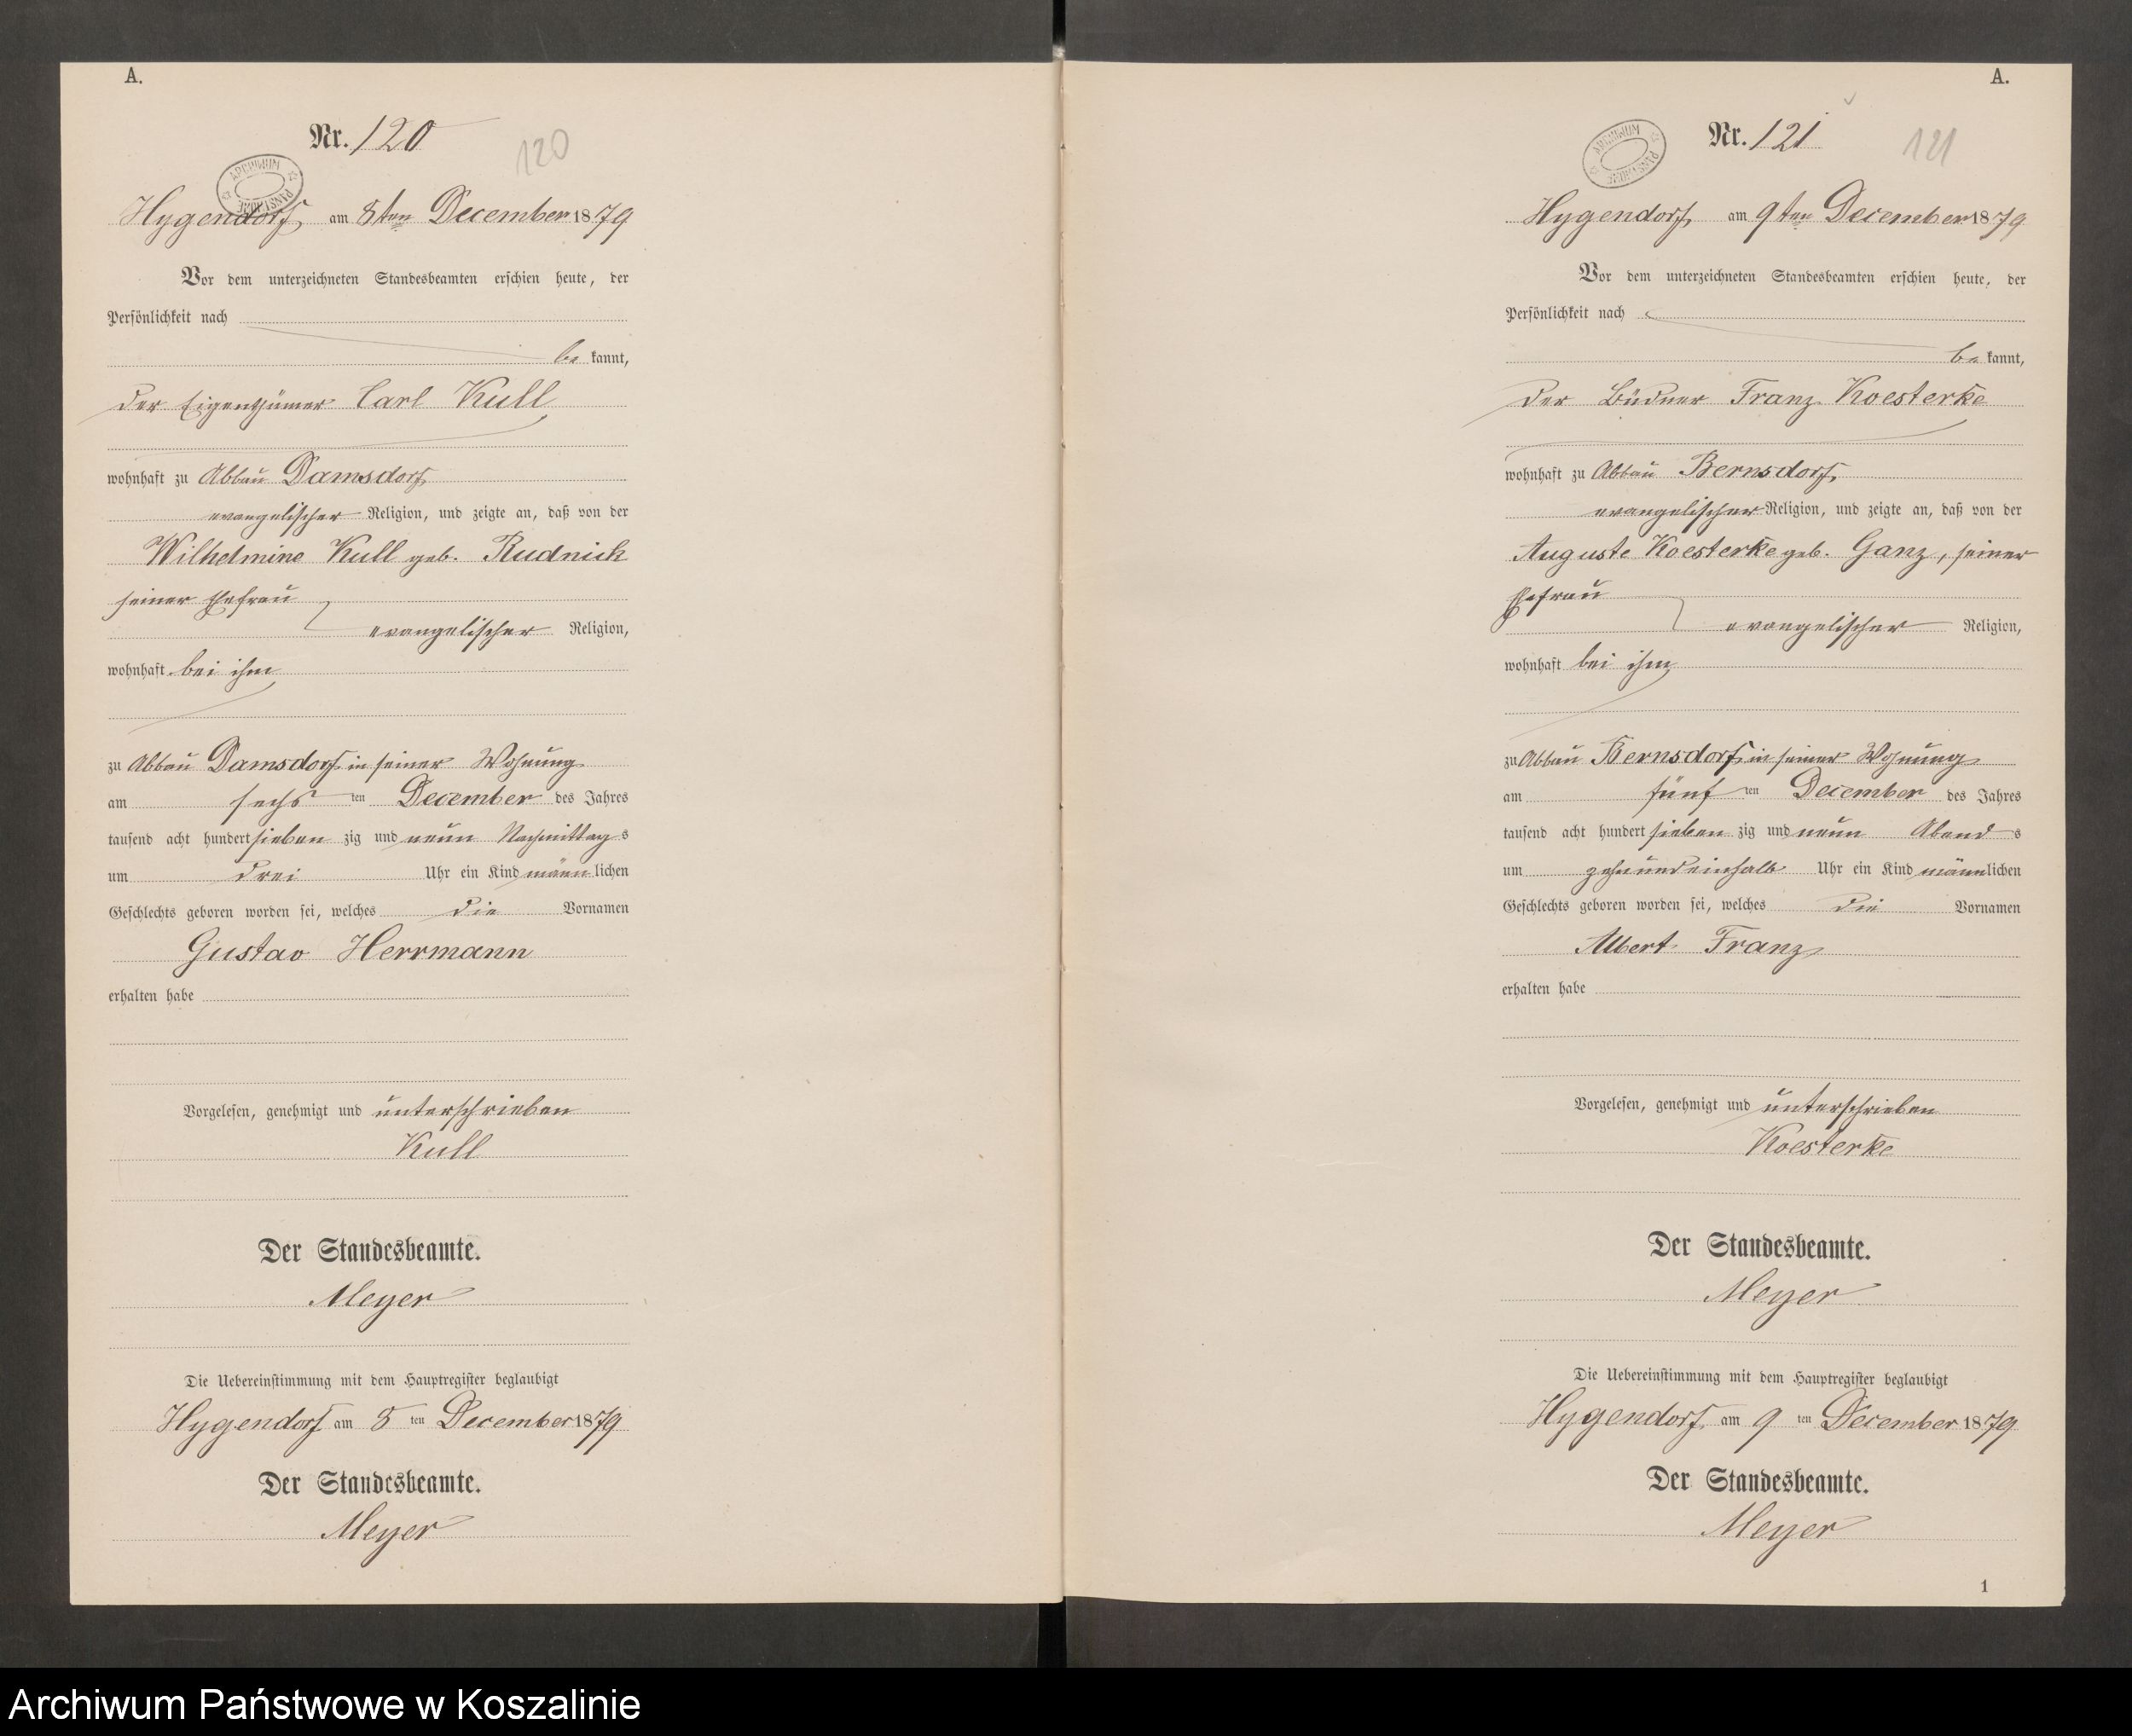 A.
Nr. 120
120
ARCHIWUM PAŃSTWOWE
Hygendorf am 8ten December 1879
Vor dem unterzeichneten Standesbeamten erschien heute, der
Persönlichkeit nach
be kannt,
der Eigenthümer Carl Kull
wohnhaft zu Abbau Damsdorf
evangelischer Religion, und zeigte an, daß von der
Wilhelmine Kull geb. Rudnick
seiner Ehefrau
evangelischer Religion,
wohnhaft bei ihm
zu Abbau Damsdorf in seiner Wohnung
am sechs ten December des Jahres
tausend acht hundert sieben zig und neun Nachmittag s
um drei Uhr ein Kind männ lichen
Geschlechts geboren worden sei, welches die Vornamen
Gustav Herrmann
erhalten habe
Vorgelesen, genehmigt und unterschrieben
Kull
Der Standesbeamte.
Meyer
Die Uebereinstimmung mit dem Hauptregister beglaubigt
Hygendorf am 8 ten December 1879
Der Standesbeamte.
Meyer
A.
Nr. 121
121
ARCHIWUM PAŃSTWOWE
Hygendorf, am 9ten December 1879
Vor dem unterzeichneten Standesbeamten erschien heute, der
Persönlichkeit nach
be kannt,
der Büdner Franz Koesterke
wohnhaft zu Abbau Bernsdorf,
evangelischer Religion, und zeigte an, daß von der
Auguste Koesterke geb. Ganz, seiner
Ehefrau
evangelischer Religion,
wohnhaft bei ihm
zu Abbau Bernsdorf in seiner Wohnung
am fünf ten December des Jahres
tausend acht hundert sieben zig und neun Abend s
um zehn und einhalb Uhr ein Kind männlichen
Geschlechts geboren worden sei, welches die Vornamen
Albert Franz
erhalten habe
Vorgelesen, genehmigt und unterschrieben
Koesterke
Der Standesbeamte.
Meyer
Die Uebereinstimmung mit dem Hauptregister beglaubigt
Hygendorf, am 9 ten December 1879
Der Standesbeamte.
Meyer
1
Archiwum Państwowe w Koszalinie